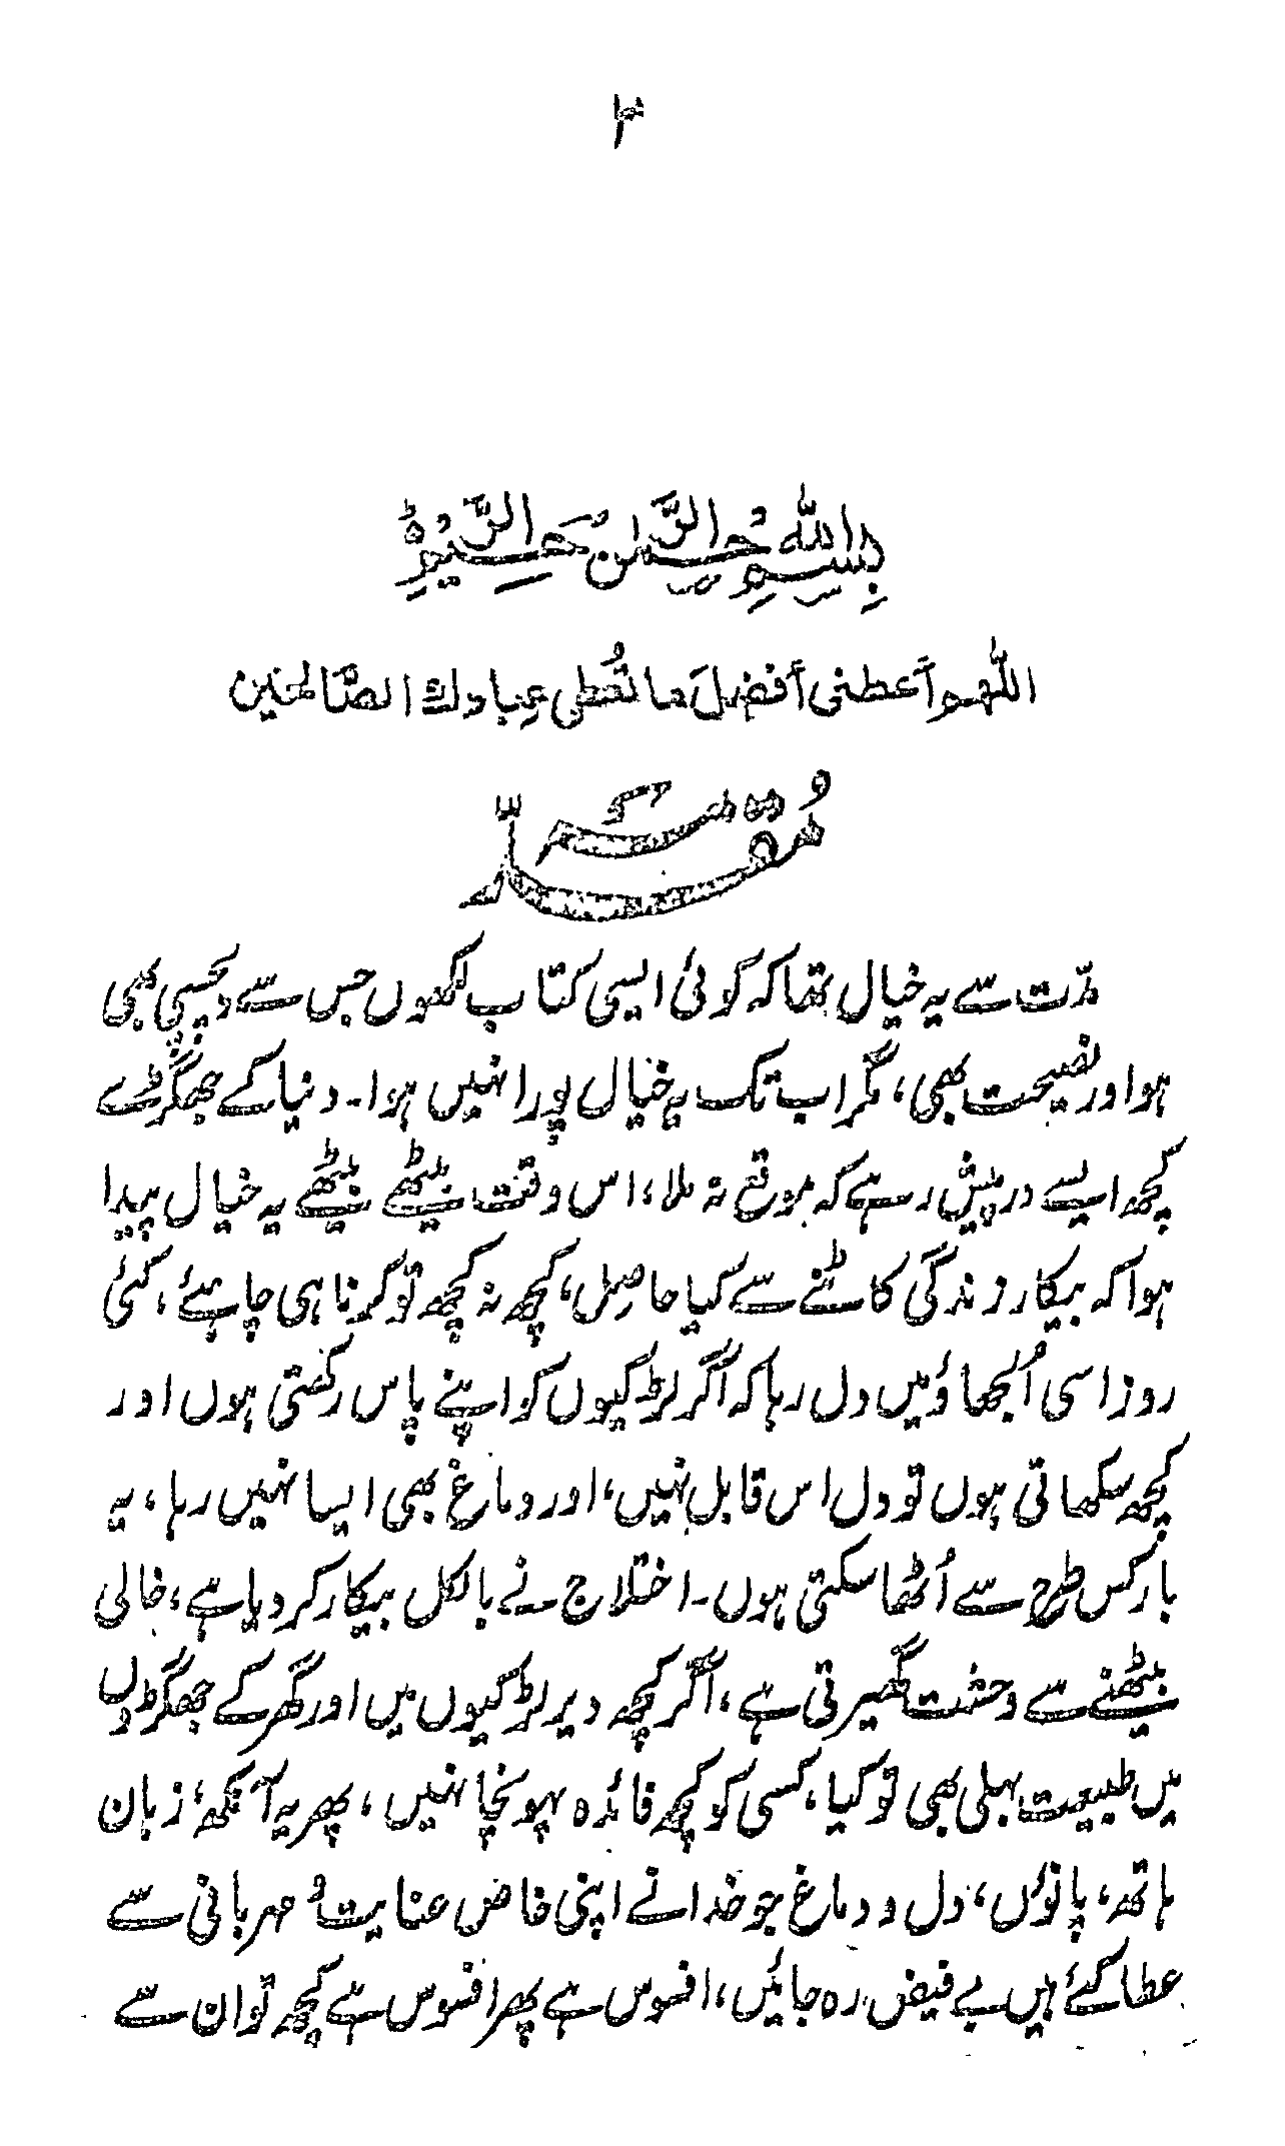 ۳
بِسْمِ اللهِ الرَّحْمٰنِ الرَّحِيْمِ
اللّٰهم أَعطنى أفضلَ ما تُعطى عِبادك الصّالحين
مُقَدَّمَہ
مدّت سے یہ خیال تھا کہ کوئی ایسی کتاب لکھوں جس سے دلچسپی بھی
ہو اور نصیحت بھی، مگر اب تک یہ خیال پورا نہیں ہوا۔ دنیا کے جھگڑے
کچھ ایسے درپیش رہے کہ موقع نہ ملا، اس وقت بیٹھے بیٹھے یہ خیال پیدا
ہوا کہ بیکار زندگی کاٹنے سے کیا حاصِل، کچھ نہ کچھ تو کرنا ہی چاہئے، کئی
روز اسی اُلجھاؤ میں دل رہا کہ اگر لڑکیوں کو اپنے پاس رکھتی ہوں اور
کچھ سکھاتی ہوں تو دل اس قابل نہیں، اور دماغ بھی ایسا نہیں رہا، یہ
بار کس طرح سے اُٹھا سکتی ہوں۔ اختلاج نے بالکل بیکار کر دیا ہے، خالی
بیٹھنے سے وحشت گھیرتی ہے، اگر کچھ دیر لڑکیوں میں اور گھر کے جھگڑوں
میں طبیعت بہلی بھی تو کیا، کسی کو کچھ فائدہ پہونچا نہیں، پھر یہ آنکھ، زبان
ہاتھ، پانوُں، دل و دماغ جو خدا نے اپنی خاص عنایت و مہربانی سے
عطا کئے ہیں بے فیض رہ جائیں، افسوس ہے پھر افسوس ہے کچھ تو ان سے